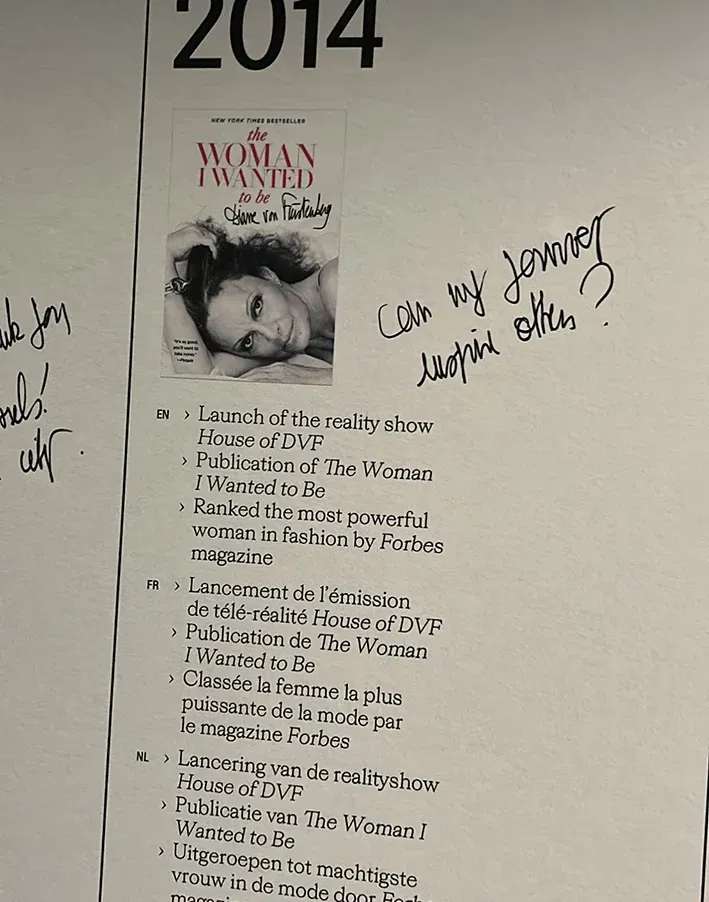 2014
NEW YORK TIMES BESTSELLER
the
WOMAN
I WANTED
to be
Diane von Furstenberg
"It's so good,
you'll want to
take notes."
—People
Can my journey
inspire others?
EN › Launch of the reality show
House of DVF
› Publication of The Woman
I Wanted to Be
› Ranked the most powerful
woman in fashion by Forbes
magazine
FR › Lancement de l'émission
de télé-réalité House of DVF
› Publication de The Woman
I Wanted to Be
› Classée la femme la plus
puissante de la mode par
le magazine Forbes
NL › Lancering van de realityshow
House of DVF
› Publicatie van The Woman I
Wanted to Be
› Uitgeroepen tot machtigste
vrouw in de mode door